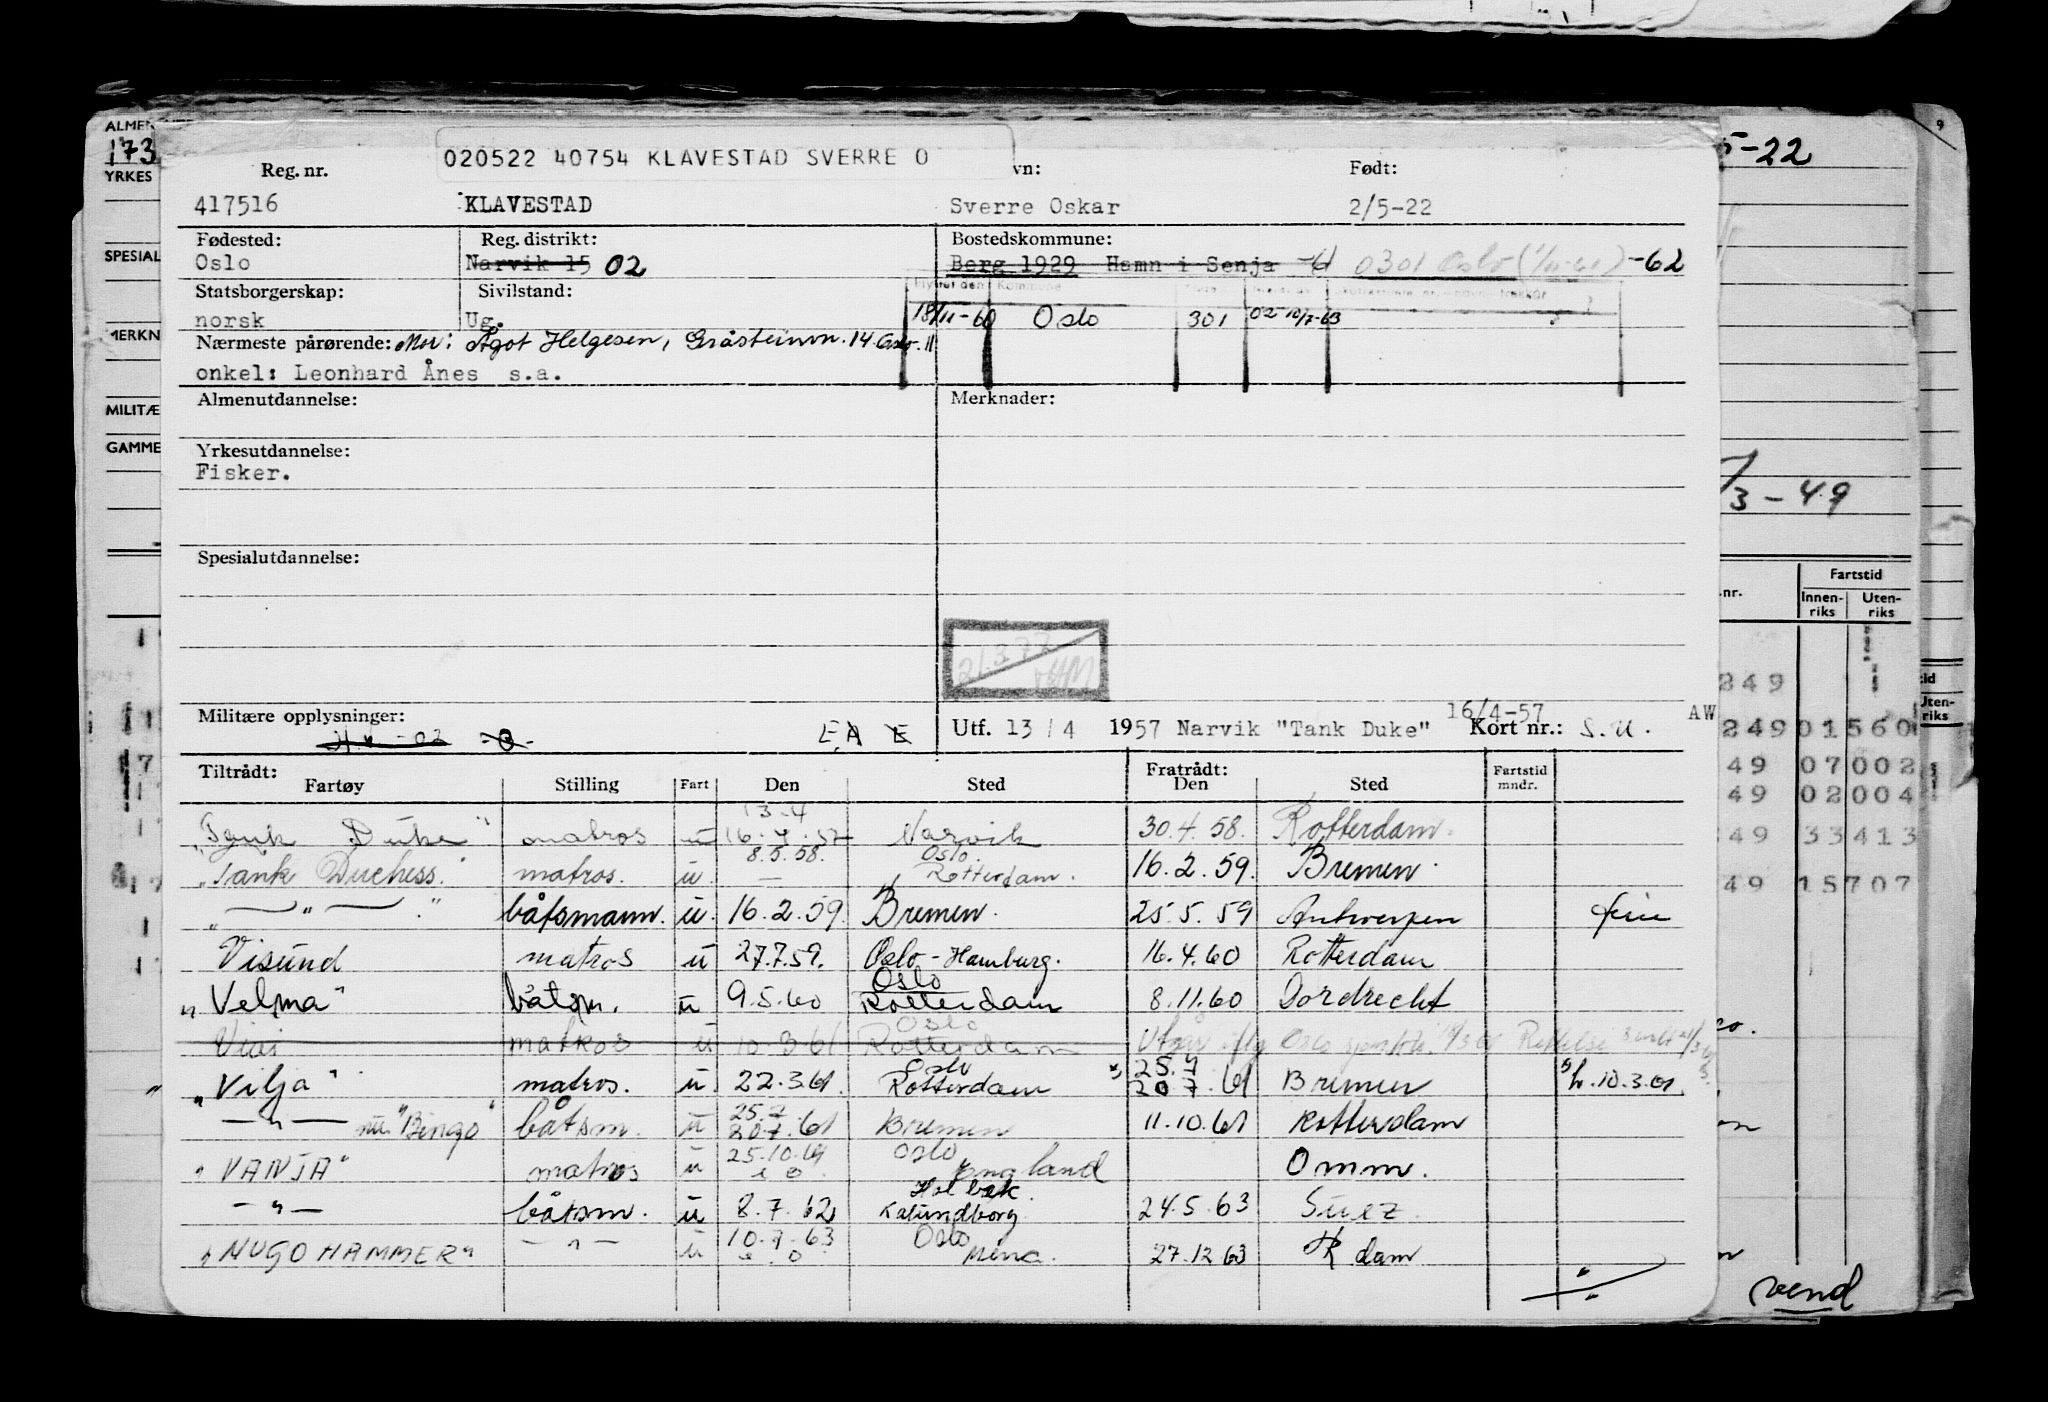 020522 40754 KLAVESTAD SVERRE O
Reg. nr. vn: Født:
417516 KLAVESTAD Sverre Oskar 2/5-22
Fødested: Reg. distrikt: Bostedskommune:
Oslo Narvik 15 02 Berg 1929 Hamn i Senja 0301 Oslo -62
Statsborgerskap: Sivilstand: Flyttet den Kommune
norsk Ug. 18/11-60 Oslo 301 02 10/7-63
Nærmeste pårørende: Mor: Ågot Helgesen, Gråsteinvn. 14 Oslo. 11
onkel: Leonhard Ånes s.a.
Almenutdannelse: Merknader:
Yrkesutdannelse:
Fisker.
Spesialutdannelse:
21.3.72
Militære opplysninger: Utf. 13/4 1957 Narvik "Tank Duke" 16/4-57 Kort nr.: S.U. AW
Tiltrådt: Fratrådt:
Fartøy Stilling Fart Den Sted Den Sted Fartstid mndr.
13.4
"Tank Duke" matros u 16.4.57 Narvik 30.4.58. Rotterdam.
8.5.58. Oslo
"Tank Duchess." matros. u. — Rotterdam. 16.2.59. Bremen.
— " — båtsmann. u. 16.2.59. Bremen. 25.5.59 Antwerpen
Visund matros u 27.7.59. Oslo-Hamburg. 16.4.60 Rotterdam
Oslo
"Velma" båtsm. u 9.5.60 Rotterdam 8.11.60 Dordrecht
Oslo
matros u 10.3.61 Rotterdam Utgår Oslo
Oslo 25.7
"Vilja" matros. u. 22.3.61 Rotterdam 20.7.61 Bremen 10.3.61.
25.7.
— " — nu "Bingo" båtsm. u 20.7.61 Bremen 11.10.61 Rotterdam
25.10.61 Oslo
"VANJA" matros u England Omm.
Holbæk.
— " — båtsm. u 8.7.62 Kalundborg 24.5.63 Suez.
10.7.63 Oslo
"HUGO HAMMER" — " — u Mena. 27.12.63 R dam
·/·
ALMEN
173
YRKES
SPESIAL
MERKN
MILITÆ
GAMME
5-22
/3-49
nr. Fartstid
Innenriks Utenriks
249
249 01560
49 07002
49 02004
49 33413
49 15707
vend
9